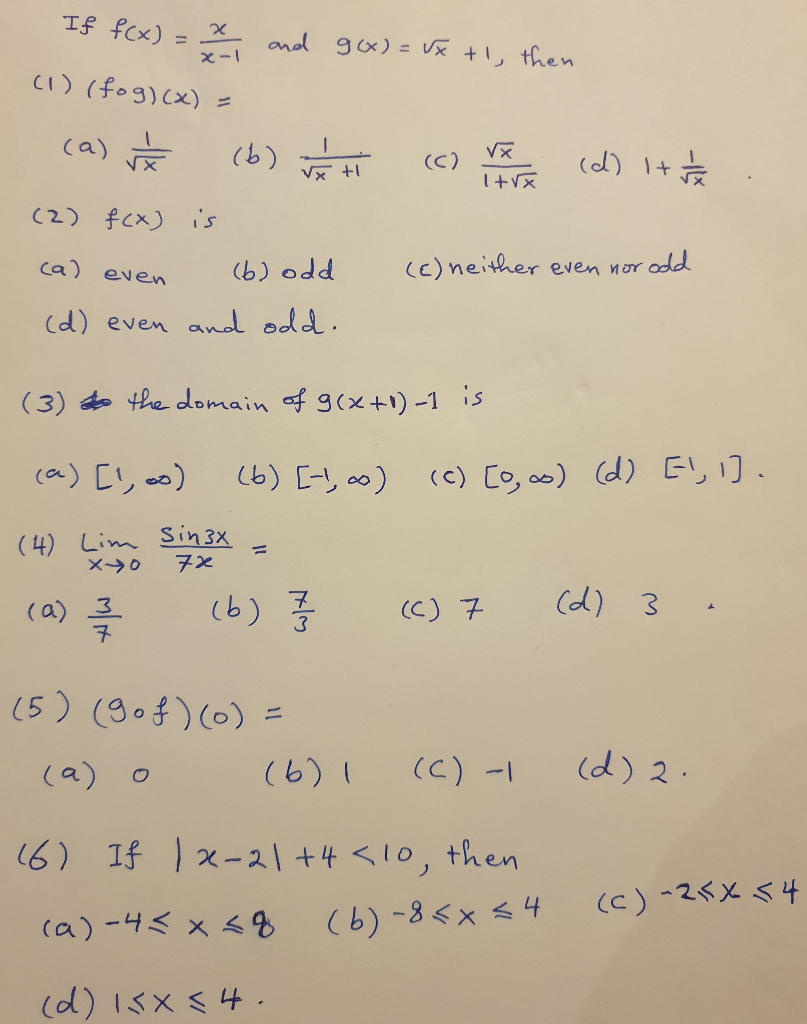 If f(x) = x/(x-1) and g(x) = √x +1, then
(1) (fog)(x) =
(a) 1/√x (b) 1/(√x +1) (c) √x/(1+√x) (d) 1+ 1/√x .
(2) f(x) is
(a) even (b) odd (c) neither even nor odd
(d) even and odd.
(3) the domain of g(x+1)-1 is
(a) [1, ∞) (b) [-1, ∞) (c) [0, ∞) (d) [-1, 1].
(4) Lim x→0 Sin3x/7x =
(a) 3/7 (b) 7/3 (c) 7 (d) 3 .
(5) (gof)(0) =
(a) 0 (b) 1 (c) -1 (d) 2.
(6) If |x-2|+4 <10, then
(a) -4 ≤ x ≤ 8 (b) -8 ≤ x ≤ 4 (c) -2 ≤ x ≤ 4
(d) 1 ≤ x ≤ 4.